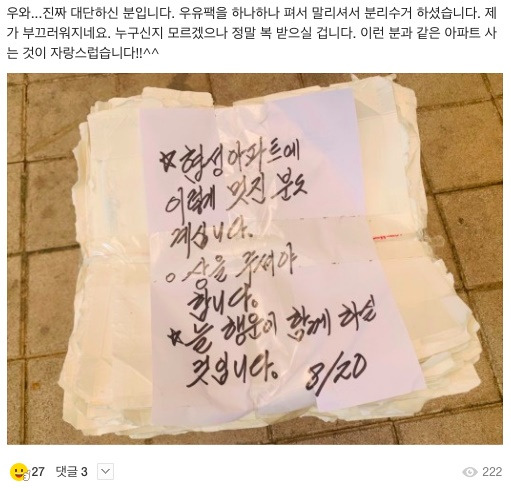 우와...진짜 대단하신 분입니다. 우유팩을 하나하나 펴서 말리셔서 분리수거 하셨습니다. 제
가 부끄러워지네요. 누구신지 모르겠으나 정말 복 받으실 겁니다. 이런 분과 같은 아파트 사
는 것이 자랑스럽습니다!!^^
☆형성아파트에
이렇게 멋진 분도
계십니다.
○ 상을 주셔야
합니다.
☆늘 행운이 함께 하실
것입니다. 8/20
27 댓글 3
222